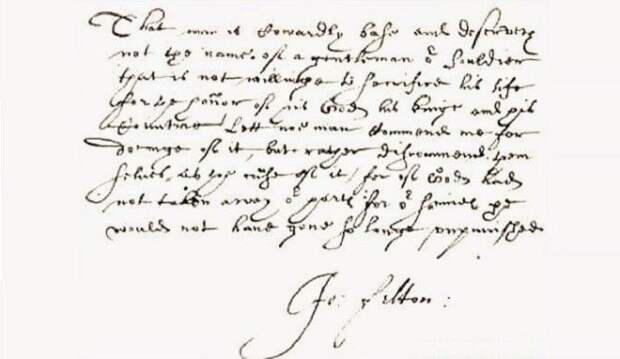 That man is cowardly base and deserveth
not the name of a gentleman or Souldier
that is not willinge to sacrifice his life
for the honor of his God his Kinge and his
Countrie Lett noe man commend me for
doeinge of it, but rather discommend them
selves as the cause of it, for if God had
not taken away or harts for or sinnes he
would not have gone so longe unpunished
Jo: Felton: